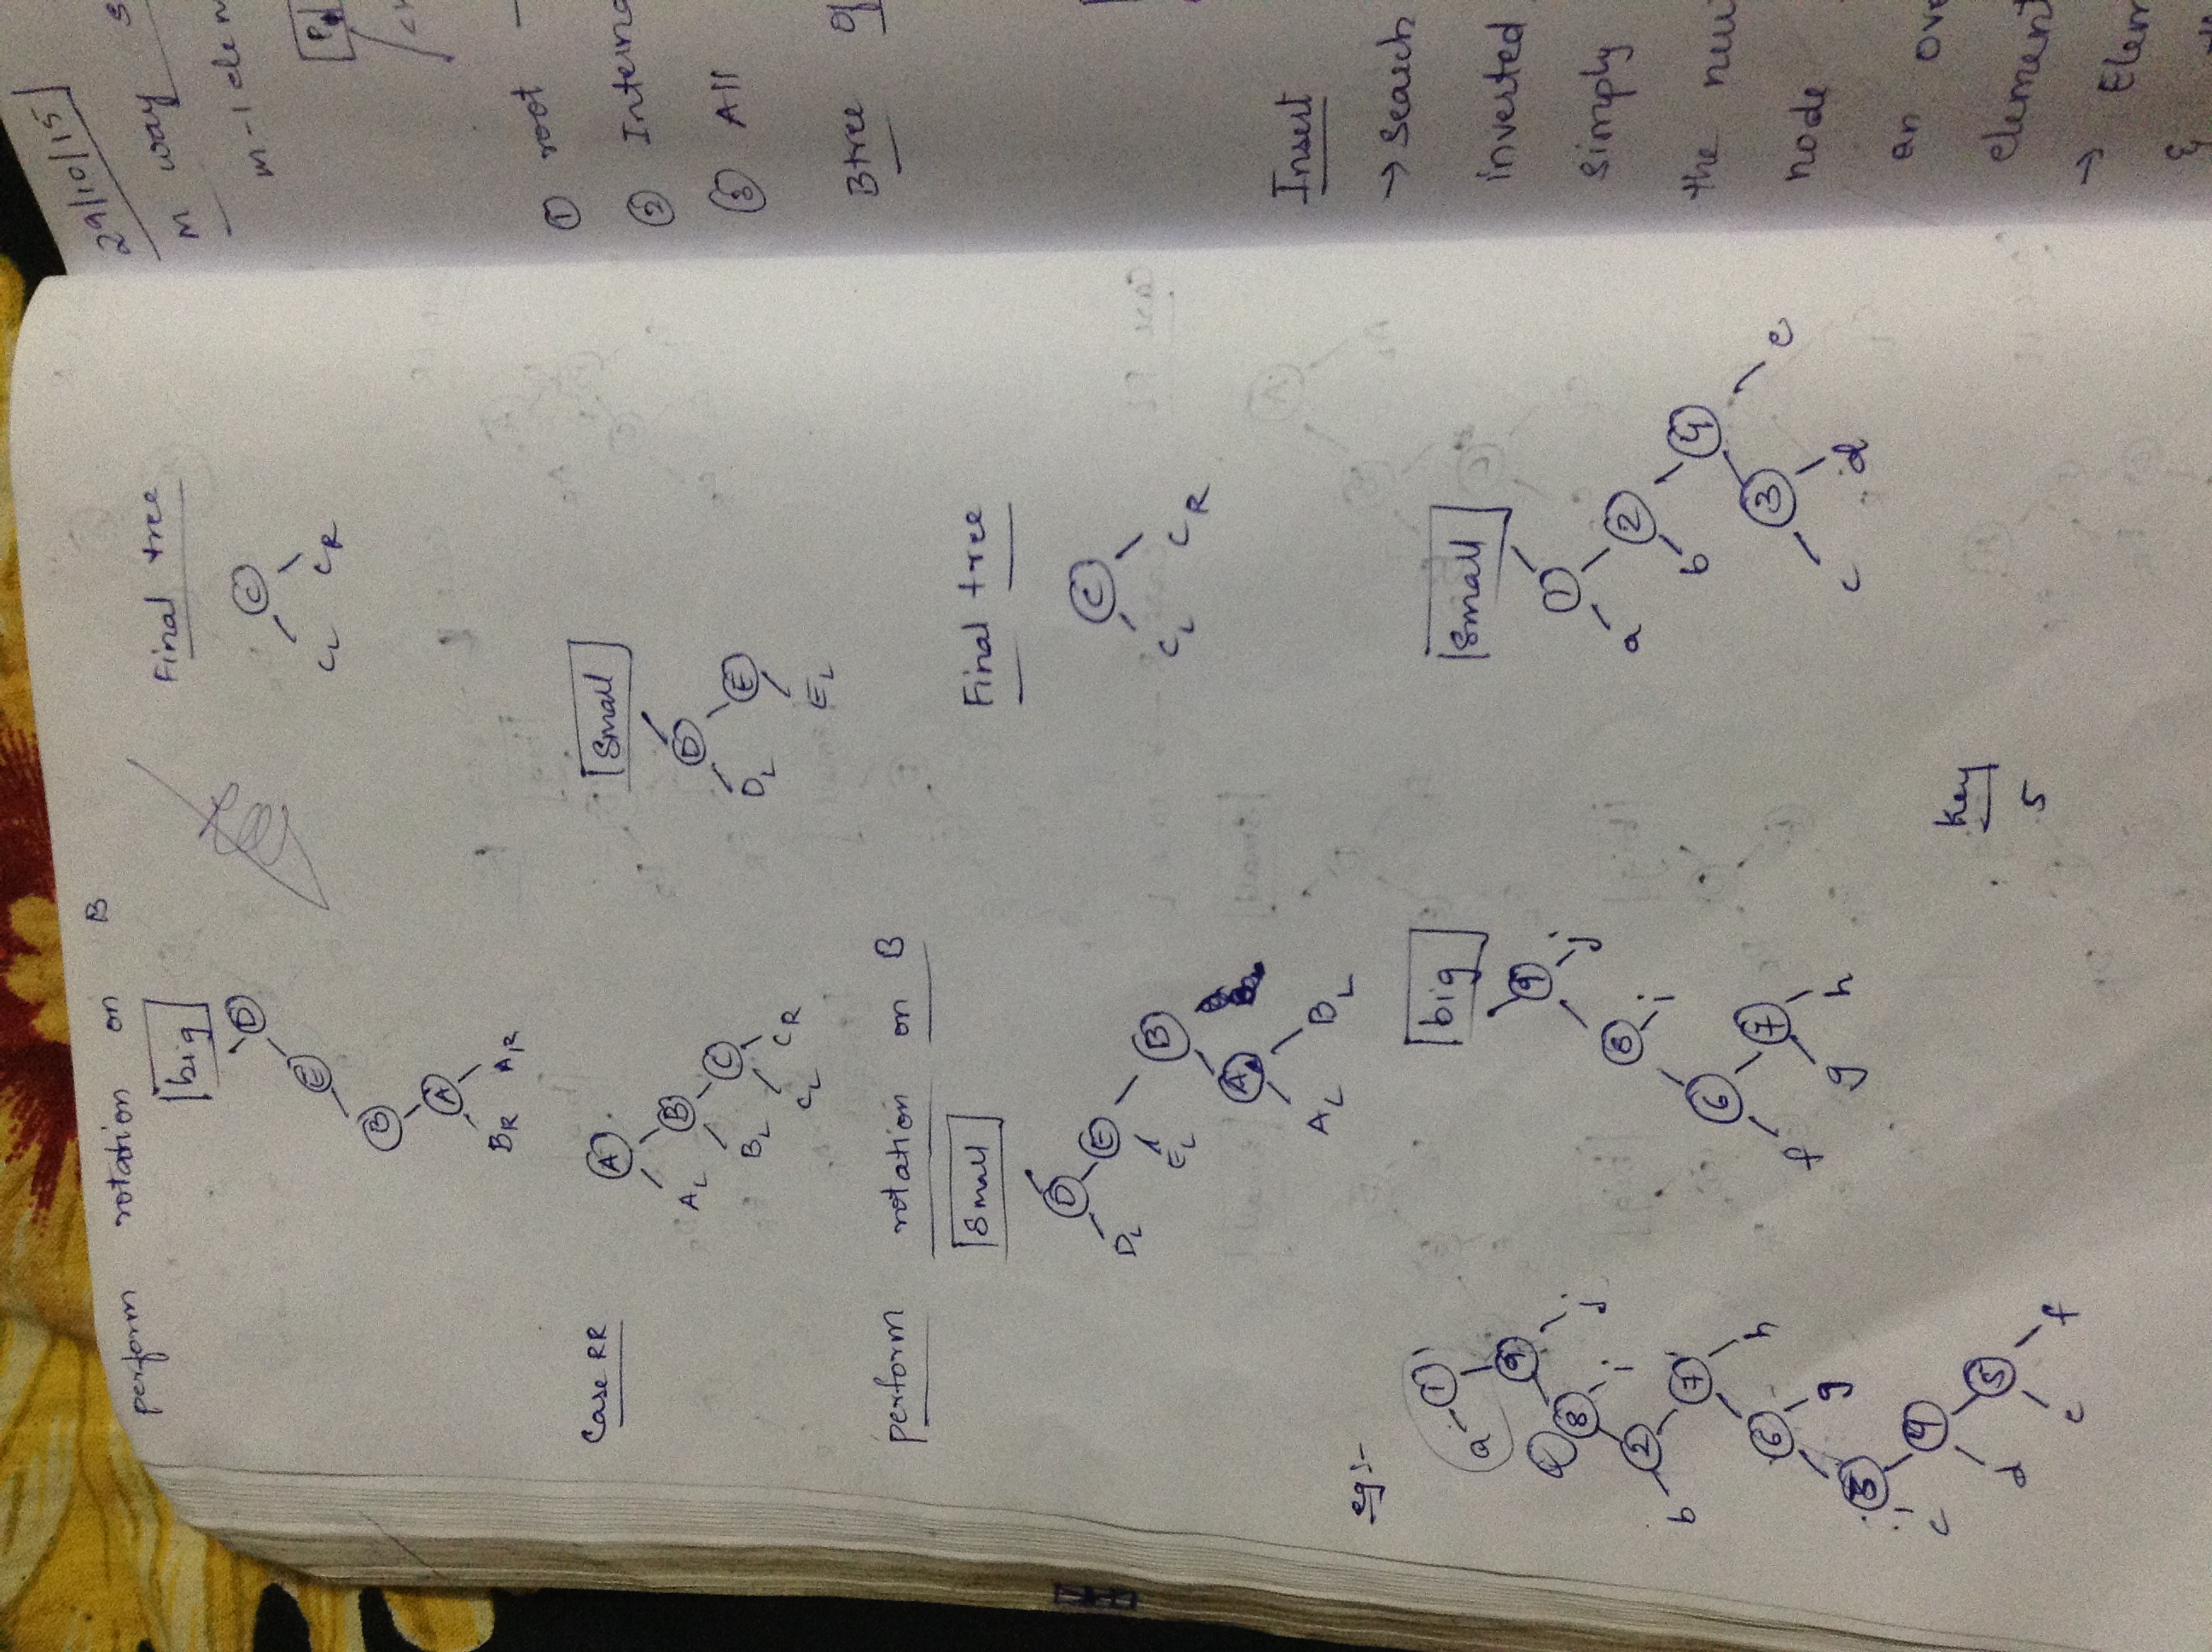 perform rotation on B
big
Final tree
D
E
B
A
BR AR
C
CL CR
Case RR
A
AL B
BL C
CL CR
Small
D
DL E
EL
perform rotation on B
Small
Final tree
D
DL E
EL B
A
AL BL
C
CL CR
eg:-
1
a
9
8 j
2 i
b 7
6 h
3 g
c 4
d 5
e f
big
9
8 j
6 i
f 7
g h
Small
1
a 2
b 4
3 e
c d
Key
5
29/10/15
m way s
m-1 elem
P
① root -
② Interna
③ All
Btree of
Insert
→ Search
inverted
simply
the new
node
an ove
element
→ Elem
&